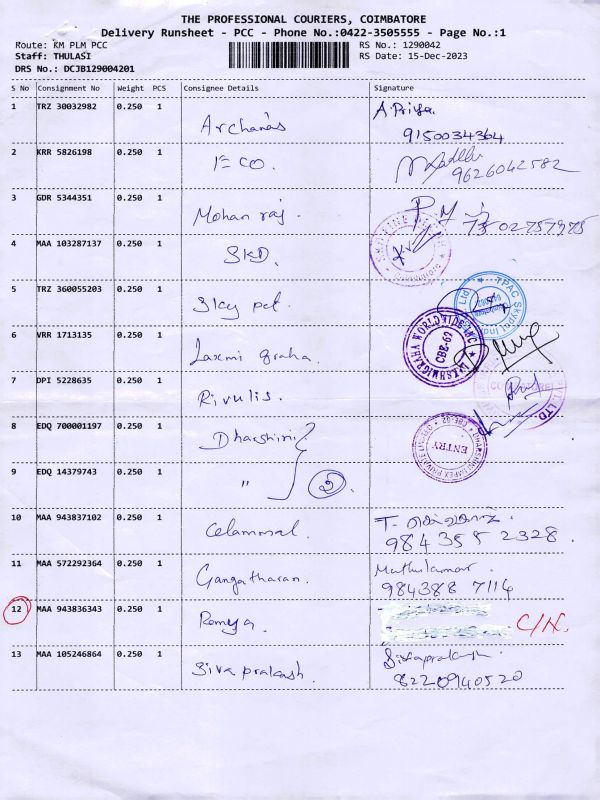 THE PROFESSIONAL COURIERS, COIMBATORE
Delivery Runsheet - PCC - Phone No.:0422-3505555 - Page No.:1
Route: KM PLM PCC
RS No.: 1290042
Staff: THULASI
RS Date: 15-Dec-2023
DRS No.: DCJB129004201
S No Consignment No Weight PCS Consignee Details Signature
1 TRZ 30032982 0.250 1 Archanas A.Priya
9150034364
2 KRR 5826198 0.250 1 9626042582
3 GDR 5344351 0.250 1 Mohan raj.
4 MAA 103287137 0.250 1 SKD.
5 TRZ 360055203 0.250 1 Sky pet.
TPAC Skypet
6 VRR 1713135 0.250 1 Laxmi graha.
LAKSHMIGRAHA WORLDWIDE INC
CBE-62
7 DPI 5228635 0.250 1 Rivulis.
8 EDQ 700001197 0.250 1 Dharshini
ENTRY
9 EDQ 14379743 0.250 1 " 2
10 MAA 943837102 0.250 1 Celammal.
984 358 2328
11 MAA 572292364 0.250 1 Gangatharan. Muthukumar.
984388 7114
12 MAA 943836343 0.250 1 Remya. C/N.
13 MAA 105246864 0.250 1 Siva prakash. Sivaprakash
8220940520